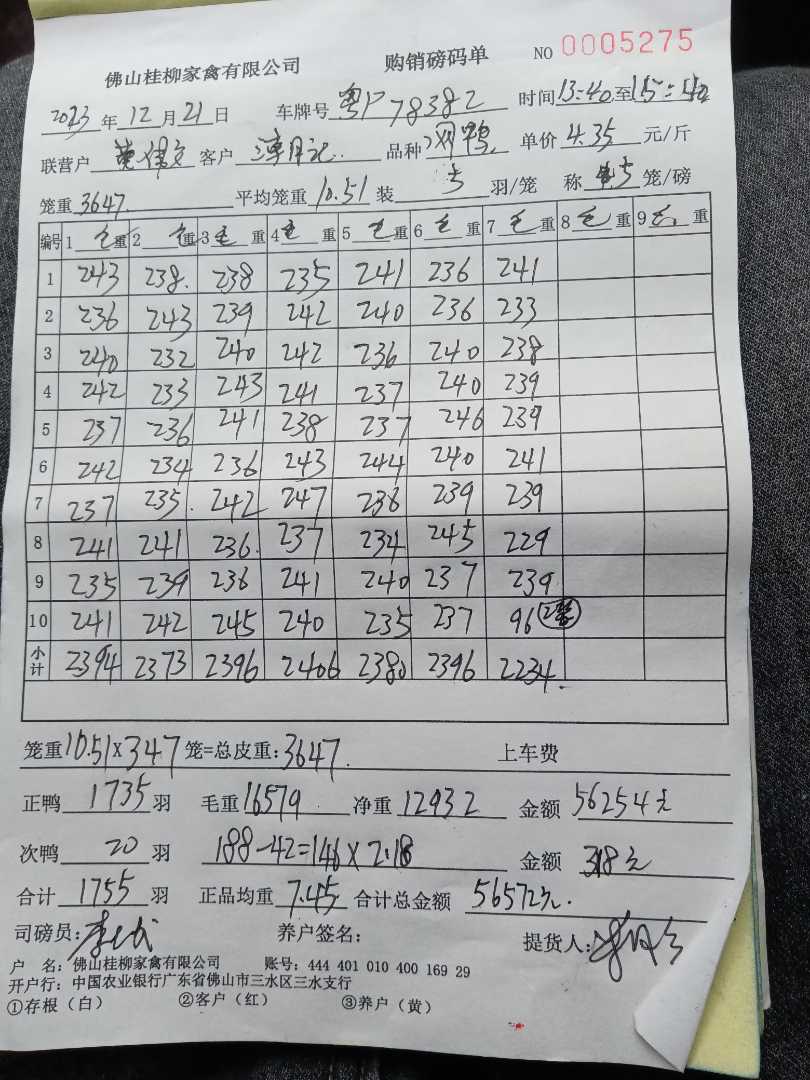 佛山桂柳家禽有限公司 购销磅码单 NO 0005275
2023年12月21日 车牌号 粤P78382 时间13:40至15:50
联营户 客户 品种 鸭 单价 4.35 元/斤
笼重 3647. 平均笼重 10.51 装 5 羽/笼 称 5 笼/磅
编号 1 毛重 2 毛重 3 毛重 4 毛重 5 毛重 6 毛重 7 毛重 8 毛重 9 毛重
1 243 238. 238 235 241 236 241
2 236 243 239 242 240 236 233
3 240 232 240 242 236 240 238
4 242 233 243 241 237 240 239
5 237 236 241 238 237 246 239
6 242 234 236 243 244 240 241
7 237 235. 242 247 238 239 239
8 241 241 236. 237 234 245 229
9 235 239 236 241 240 237 239
10 241 242 245 240 235 237 96
小计 2394 2373 2396 2406 2380 2396 2234.
笼重10.51X347笼=总皮重:3647. 上车费
正鸭 1735 羽 毛重 16579 净重 12932 金额 56254元
次鸭 20 羽 188-42=146X2.18 金额 318元
合计 1755 羽 正品均重 7.45 合计总金额 56572元.
司磅员: 养户签名: 提货人:
户 名: 佛山桂柳家禽有限公司 账号: 444 401 010 400 169 29
开户行: 中国农业银行广东省佛山市三水区三水支行
①存根（白） ②客户（红） ③养户（黄）